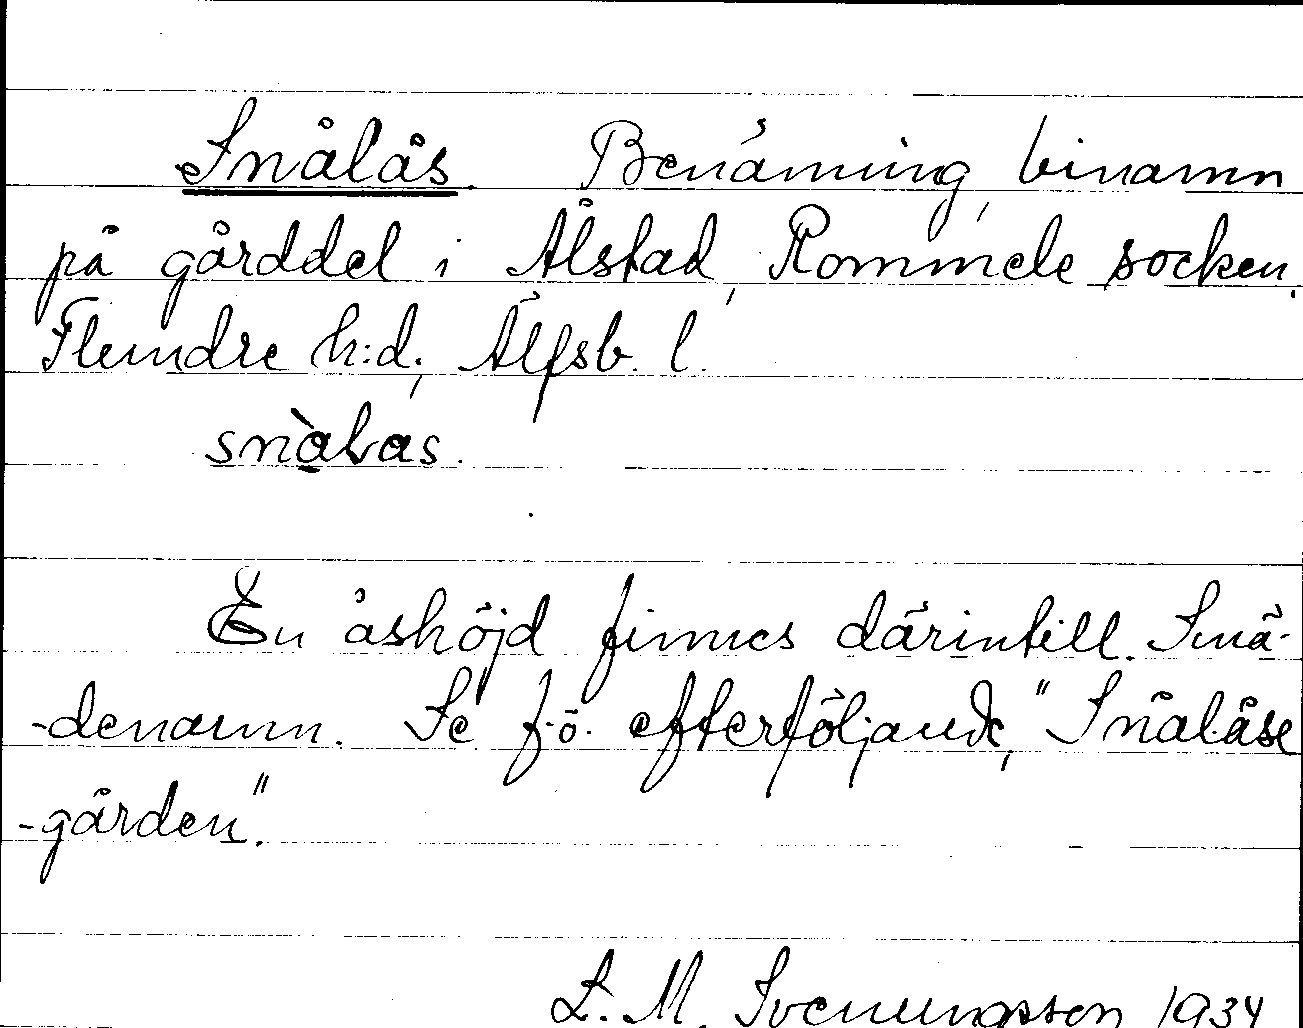 Snålås. Benämning, binamn
på gårddel i Ålstad, Rommele socken.
Flundre h:d; Älfsb. l.
snàlas.
En åshöjd finnes därintill. Smä-
-denamn. Se f.ö. efterföljande, "Snålåse
-gården".
L. M. Svenungsson 1934